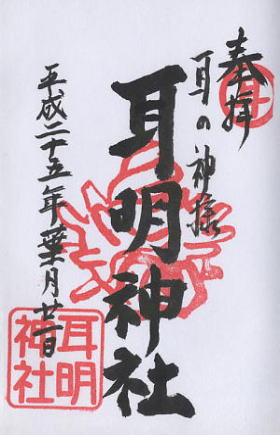 奉拝
耳の神様
耳明神社
平成二十五年葉月廿一日
耳明
神社